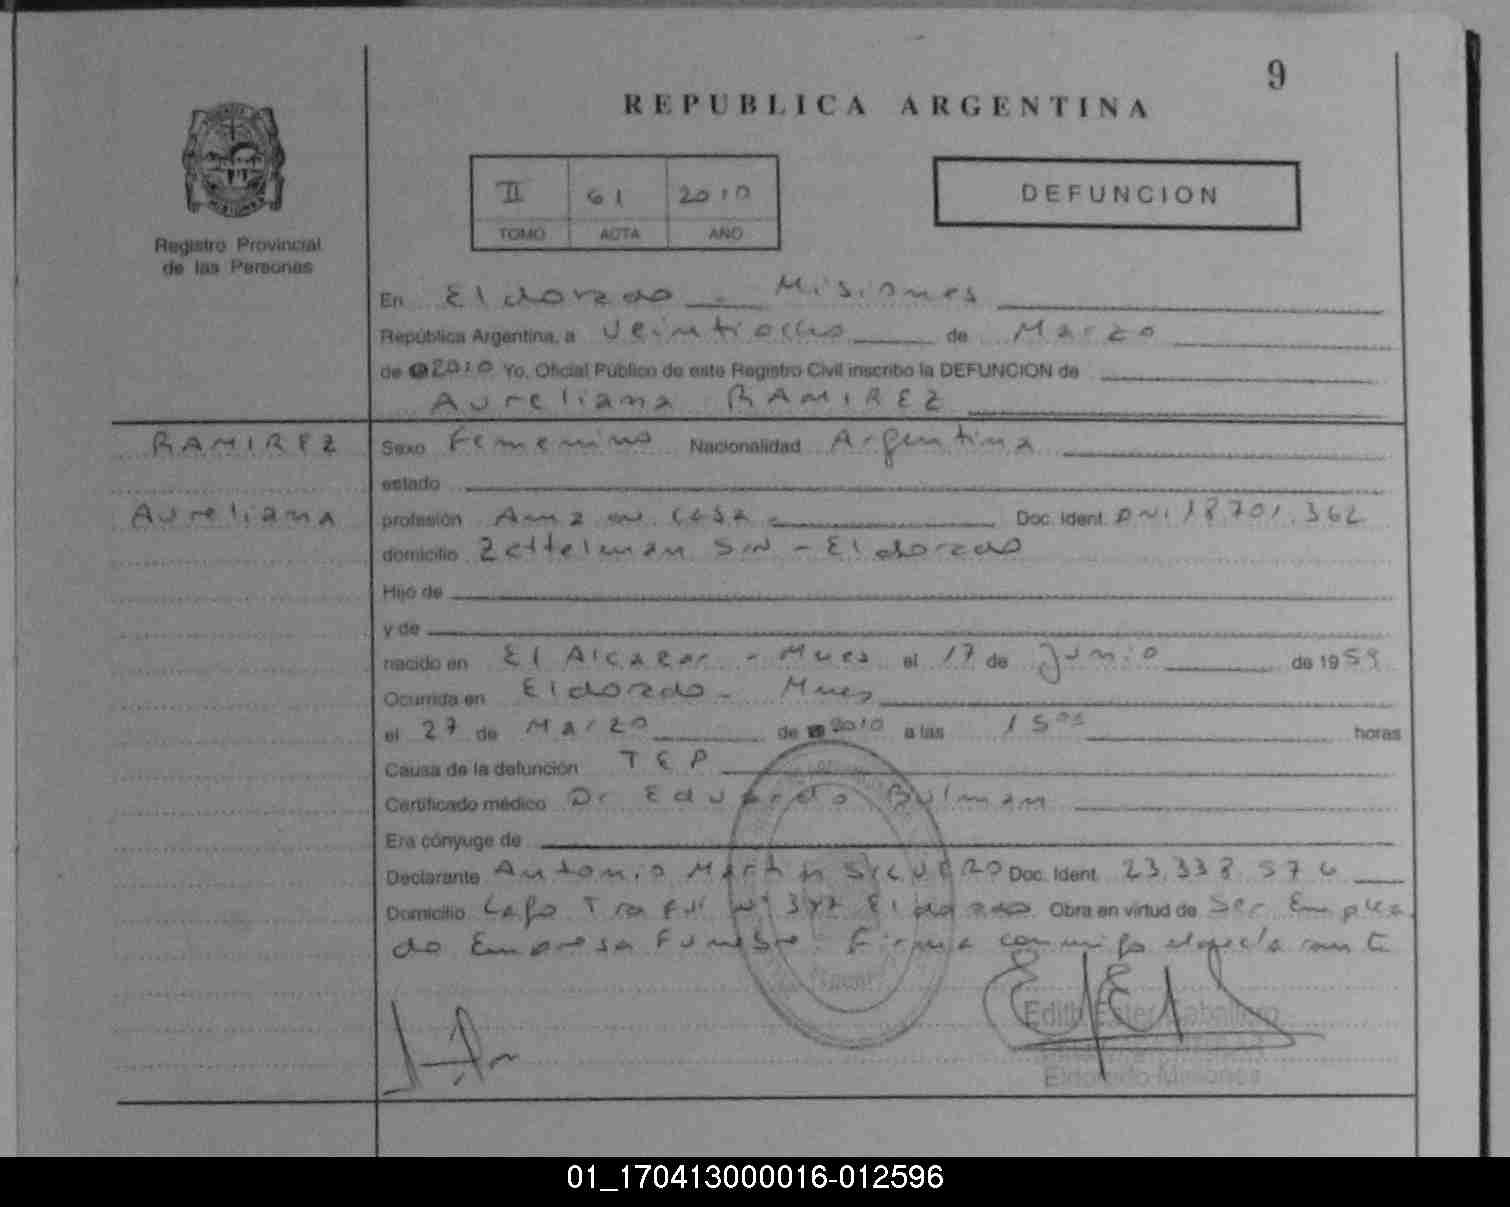 9
REPUBLICA ARGENTINA
II 61 2010
TOMO ACTA AÑO
DEFUNCION
Registro Provincial
de las Personas
En Eldorado - Misiones
República Argentina, a Veintiocho de Marzo
de 2010 Yo, Oficial Público de este Registro Civil inscribo la DEFUNCION de
Aureliana RAMIREZ
RAMIREZ
Aureliana
Sexo Femenino Nacionalidad Argentina
estado
profesión Ama de casa Doc. Ident. DNI 18.701.362
domicilio Zettelman S/N - Eldorado
Hijo de
y de
nacido en El Alcazar - Mnes el 17 de Junio de 1959
Ocurrida en Eldorado - Mnes
el 27 de Marzo de 2010 a las 15 horas
Causa de la defunción TEP
Certificado médico Dr Eduardo Bulman
Era cónyuge de
Declarante Antonio Martin Doc. Ident. 23.338.576
Domicilio Lago Eldorado Obra en virtud de Ser Emplea
do Empresa Funebre. Firma conmigo
Edith Ester Caballero
Eldorado-Misiones
01_170413000016-012596